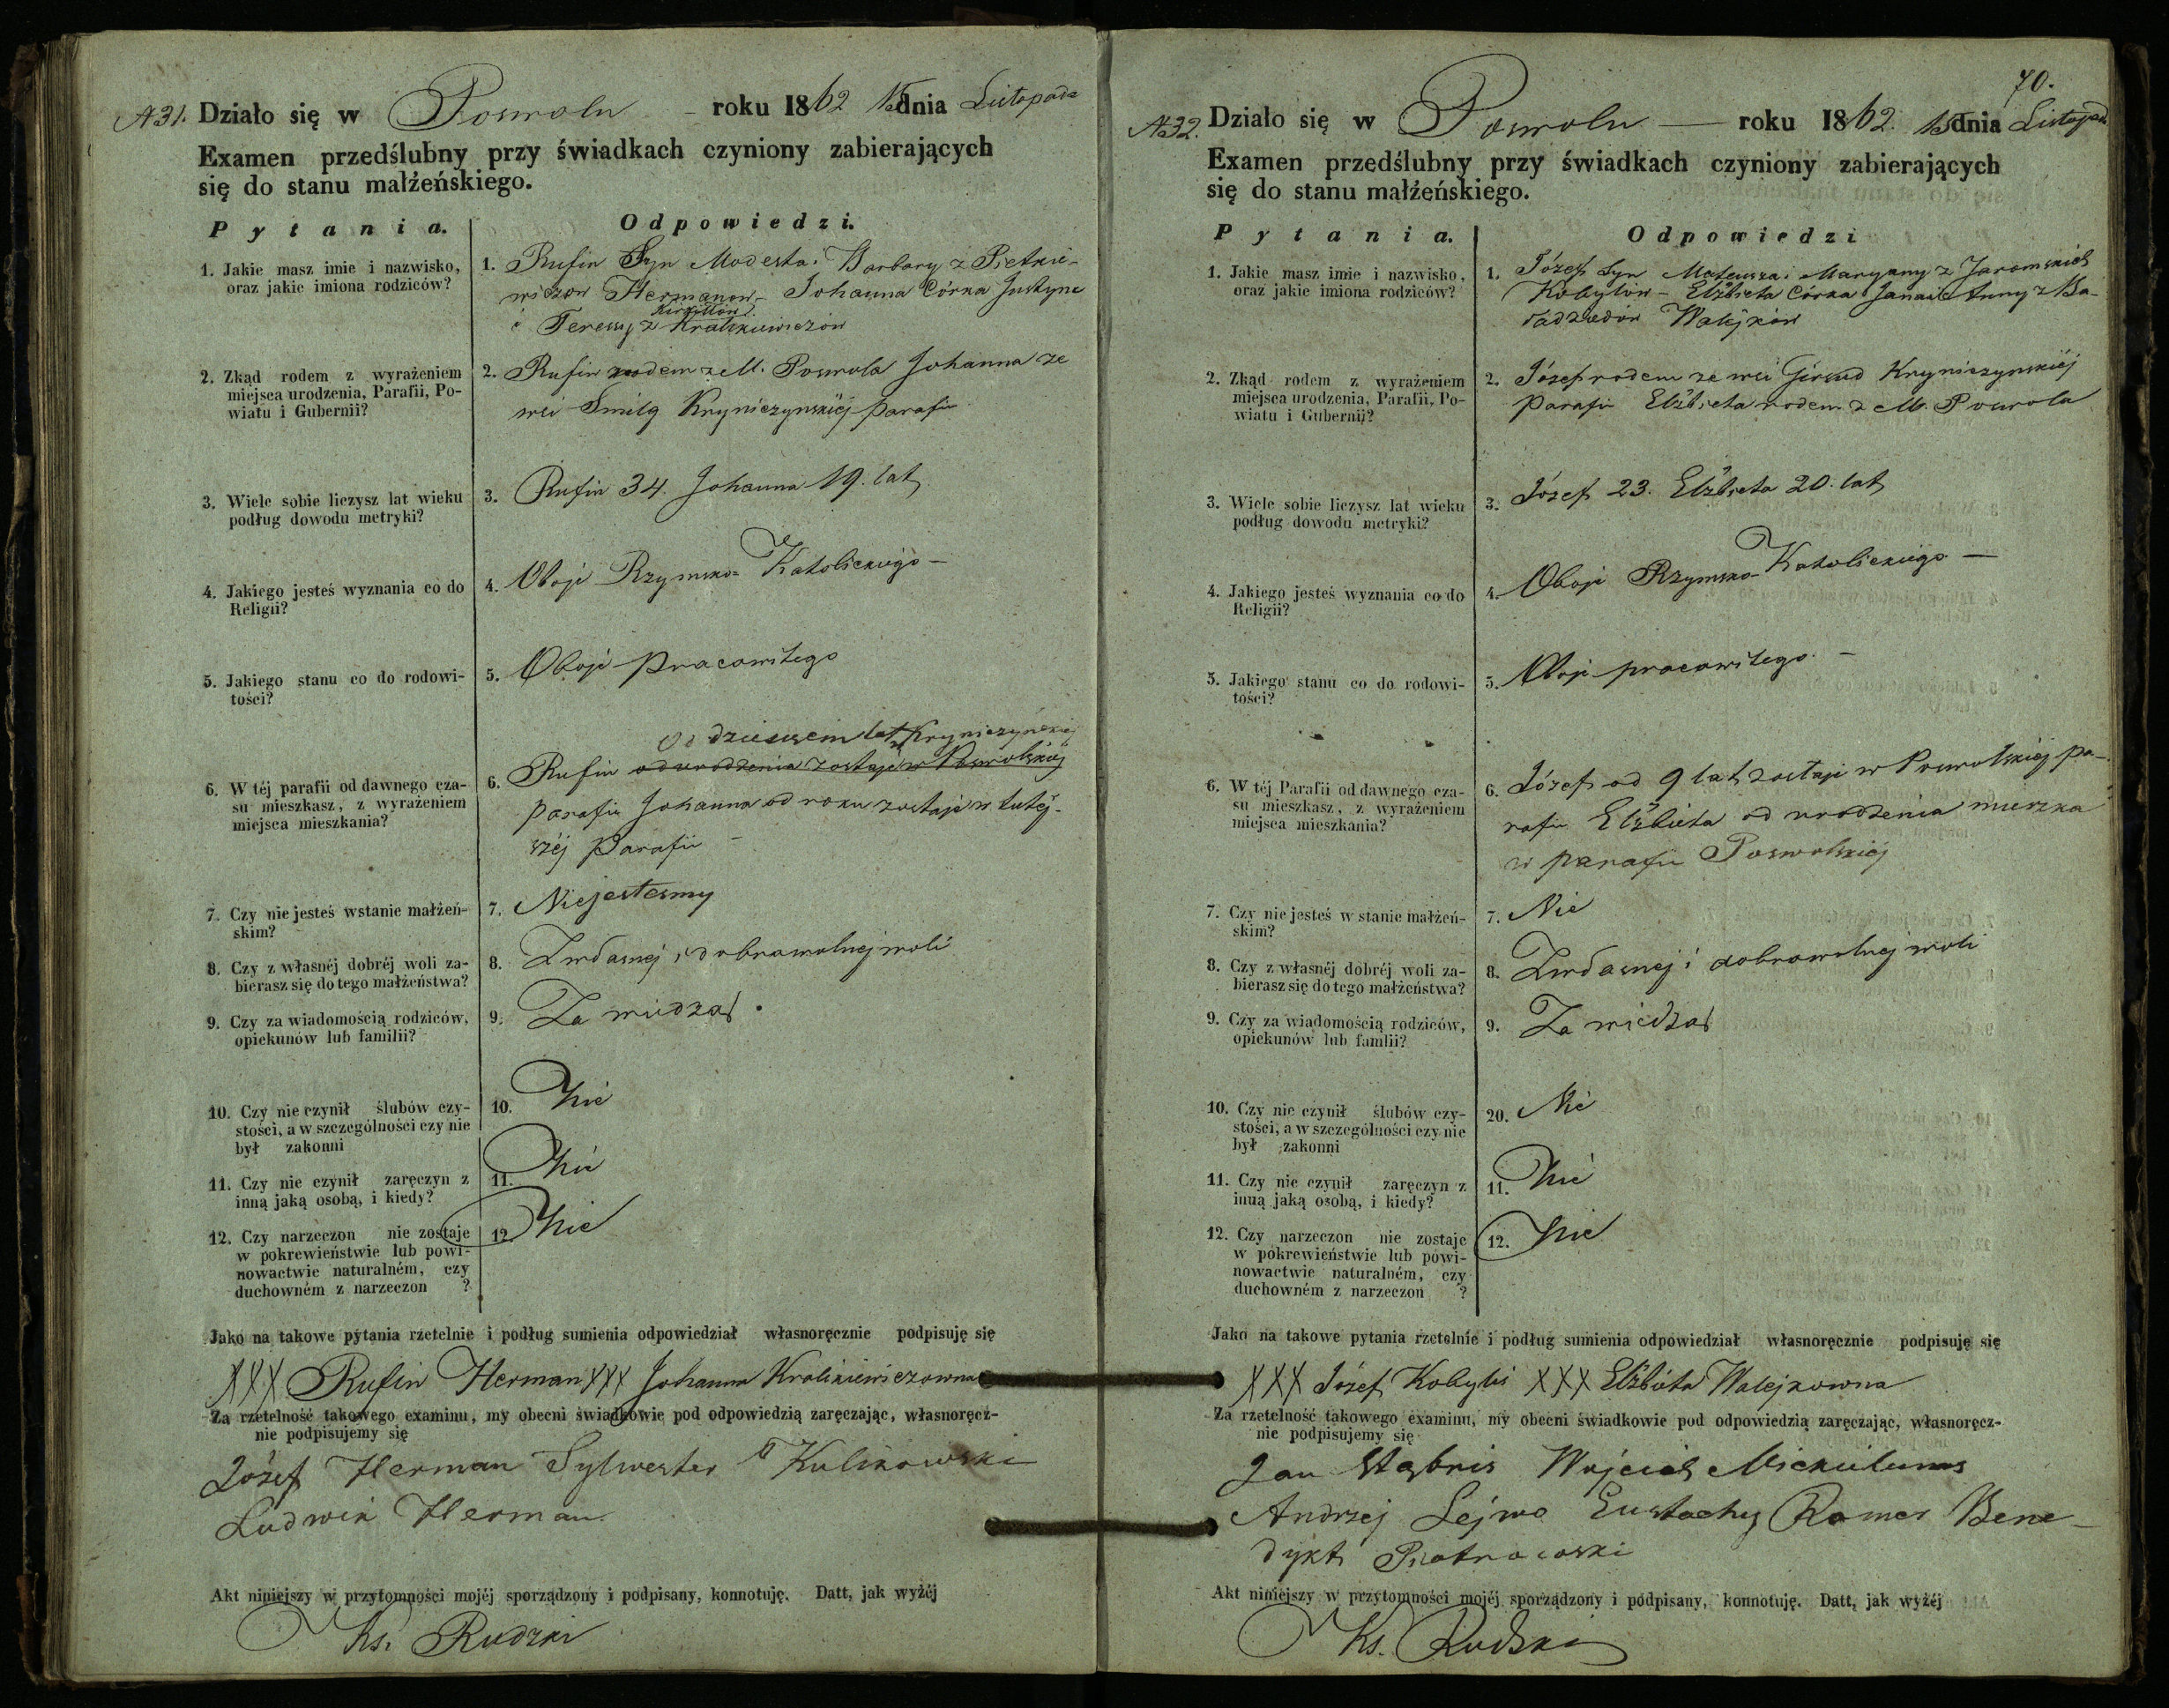 N31. Działo się w Poswolu – roku 1862 15 dnia Listopada
Examen przedślubny przy świadkach czyniony zabierających
się do stanu małżeńskiego.
Pytania.
Odpowiedzi.
1. Jakie masz imie i nazwisko,
oraz jakie imiona rodziców?
1. Rufin Syn Modesta i Barbary z Pietkie-
wiczow Hermanow – Johanna Córka Justyna
i Teressy z
2. Zkąd rodem z wyrażeniem
miejsca urodzenia, Parafii, Po-
wiatu i Gubernii?
2. Rufin rodem z M. Poswola Johanna ze
wsi Smilg Kryniczynskiéj parafii
3. Wiele sobie liczysz lat wieku
podług dowodu metryki?
3. Rufin 34. Johanna 19. lat
4. Jakiego jesteś wyznania co do
Religii?
4. Oboje Rzymsko-Katolickiego –
5. Jakiego stanu co do rodowi-
tości?
5. Oboje pracowitego
6. W téj parafii od dawnego cza-
su mieszkasz, z wyrażeniem
miejsca mieszkania?
od dziesięciu lat w Kryniczyńskiej
6. Rufin od urodzenia zostaje w Poswolskiéj
parafii Johanna od roku zostaje w tutéj-
széj Parafii –
7. Czy nie jesteś wstanie małżeń-
skim?
7. Niejestesmy
8. Czy z własnéj dobréj woli za-
bierasz się do tego małżeństwa?
8. Zwłasnej i dobrowolnej woli
9. Czy za wiadomością rodziców,
opiekunów lub familii?
9. Za wiedzą
10. Czy nie czynił ślubów czy-
stości, a w szczególności czy nie
był zakonni
10. Nie
11. Czy nie czynił zaręczyn z
inną jaką osobą, i kiedy?
11. Nie
12. Czy narzeczon nie zostaje
w pokrewieństwie lub powi-
nowactwie naturalném, czy
duchowném z narzeczon ?
12. Nie
Jako na takowe pytania rzetelnie i podług sumienia odpowiedział własnoręcznie podpisuję się
XXX Rufin Herman XXX Johanna Krolikiewiczowna
Za rzetelność takowego examinu, my obecni świadkowie pod odpowiedzią zaręczając, własnoręcz-
nie podpisujemy się
Józef Herman Sylwester Kulikowski
Ludwik Herman
Akt niniejszy w przytomności mojéj sporządzony i podpisany, konnotuję. Datt, jak wyżéj
Ks. Rudzki
70.
N32. Działo się w Poswolu – roku 1862. 15 dnia Listopada
Examen przedślubny przy świadkach czyniony zabierających
się do stanu małżeńskiego.
Pytania.
Odpowiedzi
1. Jakie masz imie i nazwisko,
oraz jakie imiona rodziców?
1. Józef Syn Mateusza i Maryanny z Jaromskich
Kobylów – Elżbieta Córka Jana i Anny z Ba-
Walejków
2. Zkąd rodem z wyrażeniem
miejsca urodzenia, Parafii, Po-
wiatu i Gubernij?
2. Józef rodem ze wsi Kryniczynskiéj
parafii Elżbieta rodem z M. Poswola
3. Wiele sobie liczysz lat wieku
podług dowodu metryki?
3. Józef 23. Elżbieta 20. lat
4. Jakiego jesteś wyznania co do
Religii?
4. Oboje Rzymsko-Katolickiego –
5. Jakiego stanu co do rodowi-
tości?
5. Oboje pracowitego. –
6. W téj Parafii od dawnego cza-
su mieszkasz, z wyrażeniem
miejsca mieszkania?
6. Józef od 9 lat zostaje w Poswolskiéj pa-
rafii Elżbieta od urodzenia mieszka
w parafii Poswolskiéj
7. Czy nie jesteś w stanie małżeń-
skim?
7. Nie
8. Czy z własnéj dobréj woli za-
bierasz się do tego małżeństwa?
8. Zwłasnej i dobrowolnej woli
9. Czy za wiadomością rodziców,
opiekunów lub familii?
9. Za wiedzą
10. Czy nie czynił ślubów czy-
stości, a w szczególności czy nie
był zakonni
20. Nie
11. Czy nie czynił zaręczyn z
inną jaką osobą, i kiedy?
11. Nie
12. Czy narzeczon nie zostaje
w pokrewieństwie lub powi-
nowactwie naturalném, czy
duchowném z narzeczon ?
12. Nie
Jako na takowe pytania rzetelnie i podług sumienia odpowiedział własnoręcznie podpisuję się
XXX Józef Kobylis XXX Elżbieta Walejkowna
Za rzetelność takowego examinu, my obecni świadkowie pod odpowiedzią zaręczając, własnoręcz-
nie podpisujemy się
Jan Wojciech Mickielunas
Andrzej Lejwo Eustachy Romer Bene-
dykt Piotrowski
Akt niniejszy w przytomności mojéj sporządzony i podpisany, konnotuję. Datt, jak wyżéj
Ks. Rudzki